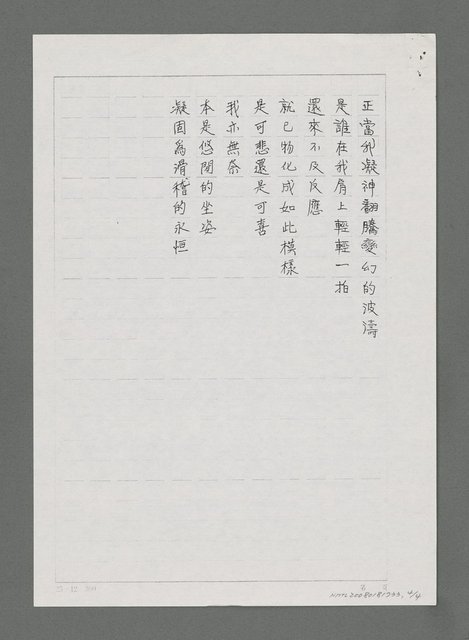 正當我凝神翻騰變幻的波濤
是誰在我肩上輕輕一拍
還來不及反應
就已物化成如此模樣
是可悲還是可喜
我亦無奈
本是悠閒的坐姿
凝固為滑稽的永恒
NMTL20080181733, 4/4